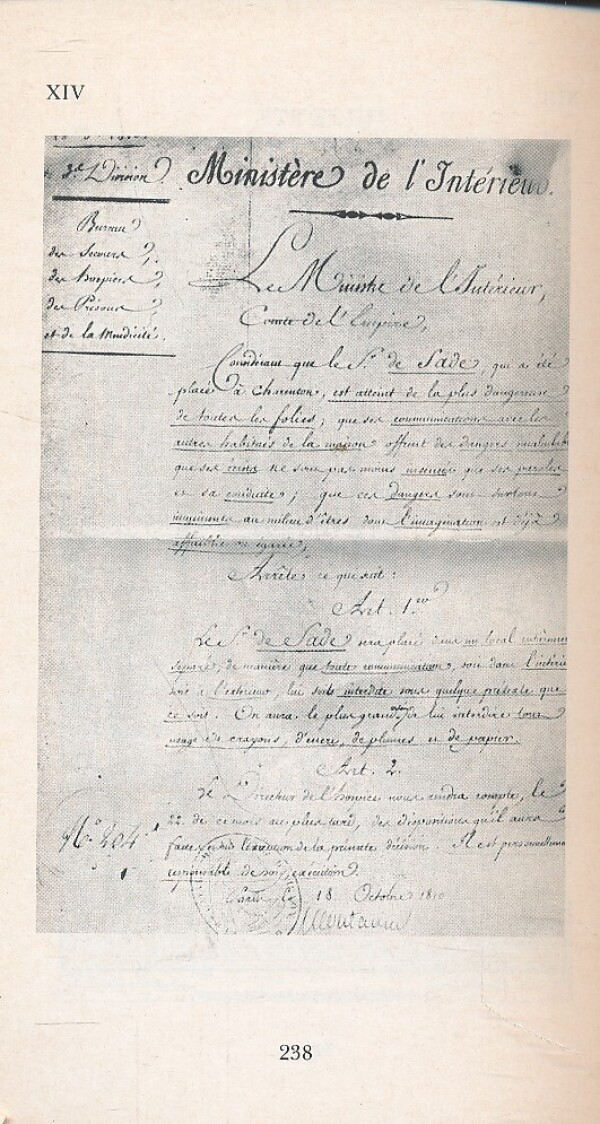 XIV
3.e Division
Ministère de l'Intérieur.
Bureau
des Secours,
des hospices,
des Prisons,
et de la Mendicité.
Le Ministre de l'Intérieur,
Comte de l'Empire,
Considérant que le S.r de Sade, qui a été
placé à Charenton, est atteint de la plus dangereuse
de toutes les folies; que ses communications avec les
autres habitués de la maison offrent des dangers
que ses écrits ne sont pas moins insensés que ses paroles
et sa conduite; que ces dangers sont surtout
imminents au milieu d'êtres dont l'imagination est déjà
affaiblie ou égarée;
Arrête ce qui suit:
Art. 1.er
Le S.r de Sade sera placé dans un local entièrement
séparé, de manière que toute communication, soit dans l'intérie
soit à l'extérieur, lui soit interdite sous quelque prétexte que
ce soit. On aura le plus grand soin de lui interdire tout
usage de crayons, d'encre, de plumes et de papier.
Art. 2.
Le Directeur de l'hospice nous rendra compte, le
22 de ce mois au plus tard, des dispositions qu'il aura
faites pour l'exécution de la présente décision. Il est personnellemen
responsable de son exécution.
N.o 204
Paris, le 18 Octobre 1810
Montalivet
238